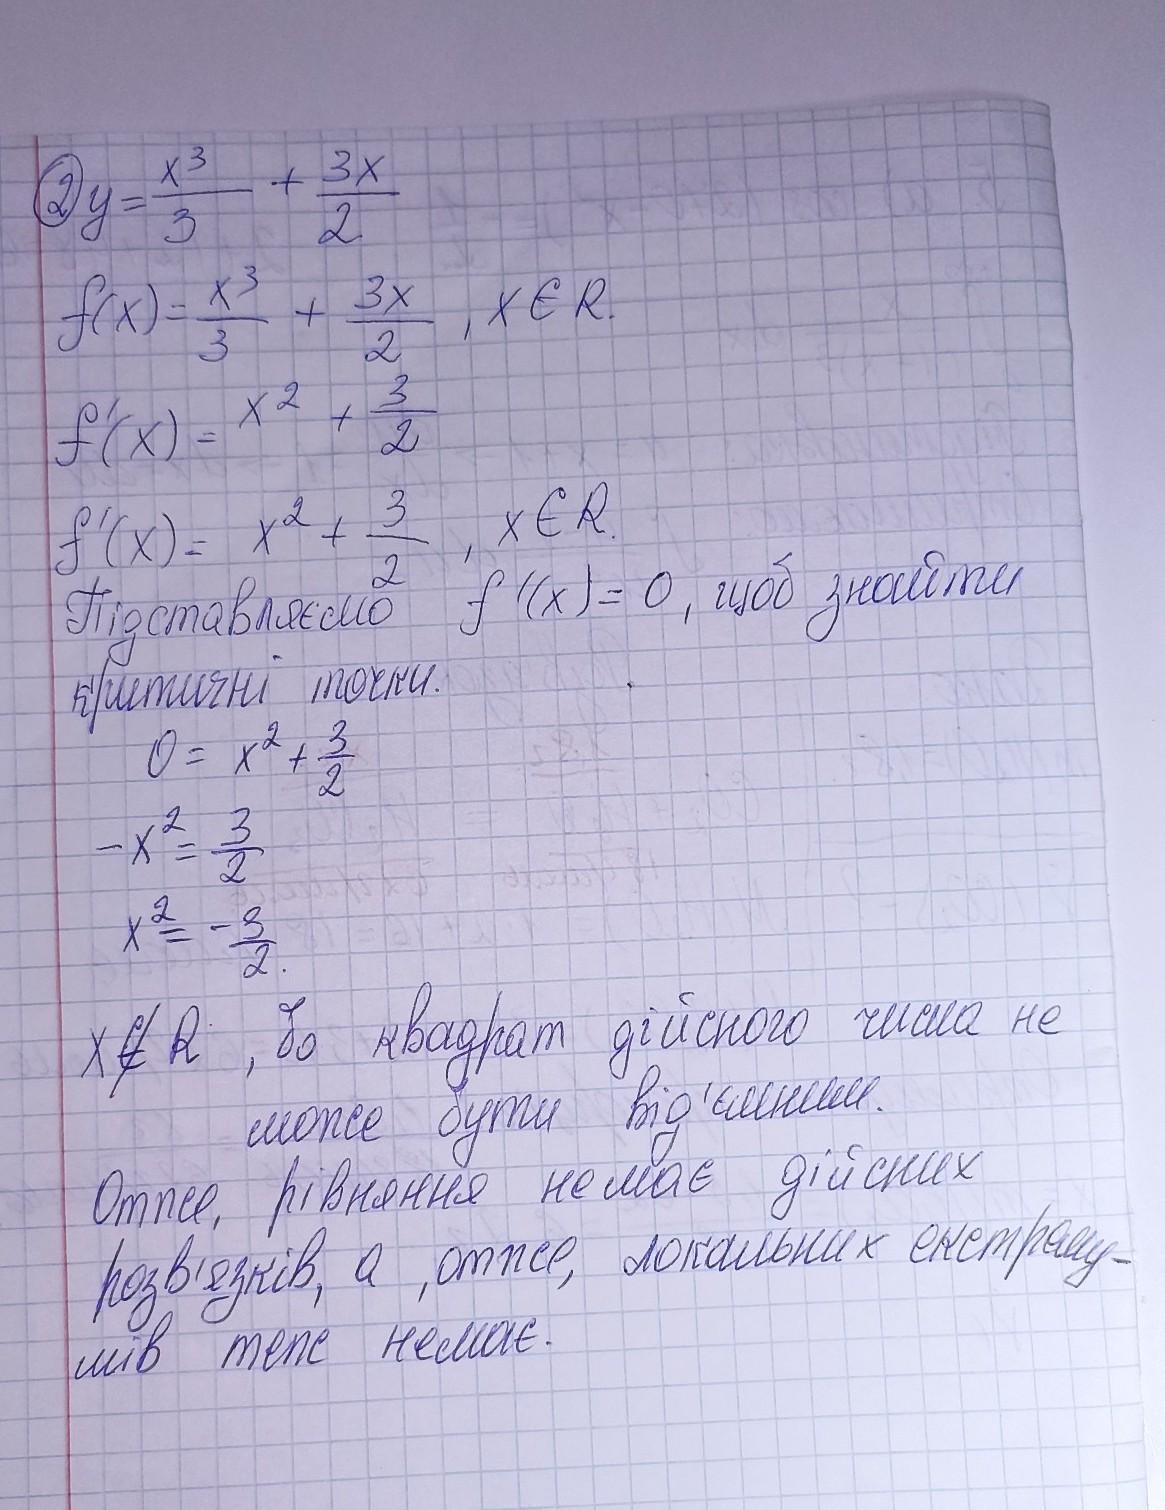 ② y = x³/3 + 3x/2
f(x) = x³/3 + 3x/2 , x ∈ R.
f'(x) = x² + 3/2
f'(x) = x² + 3/2 , x ∈ R.
Підставляємо f'(x) = 0, щоб знайти
критичні точки.
0 = x² + 3/2
-x² = 3/2
x² = -3/2.
x ∉ R , бо квадрат дійсного числа не
може бути від'ємним.
Отже, рівняння немає дійсних
розв'язків, а , отже, локальних екстрему-
мів теж немає.